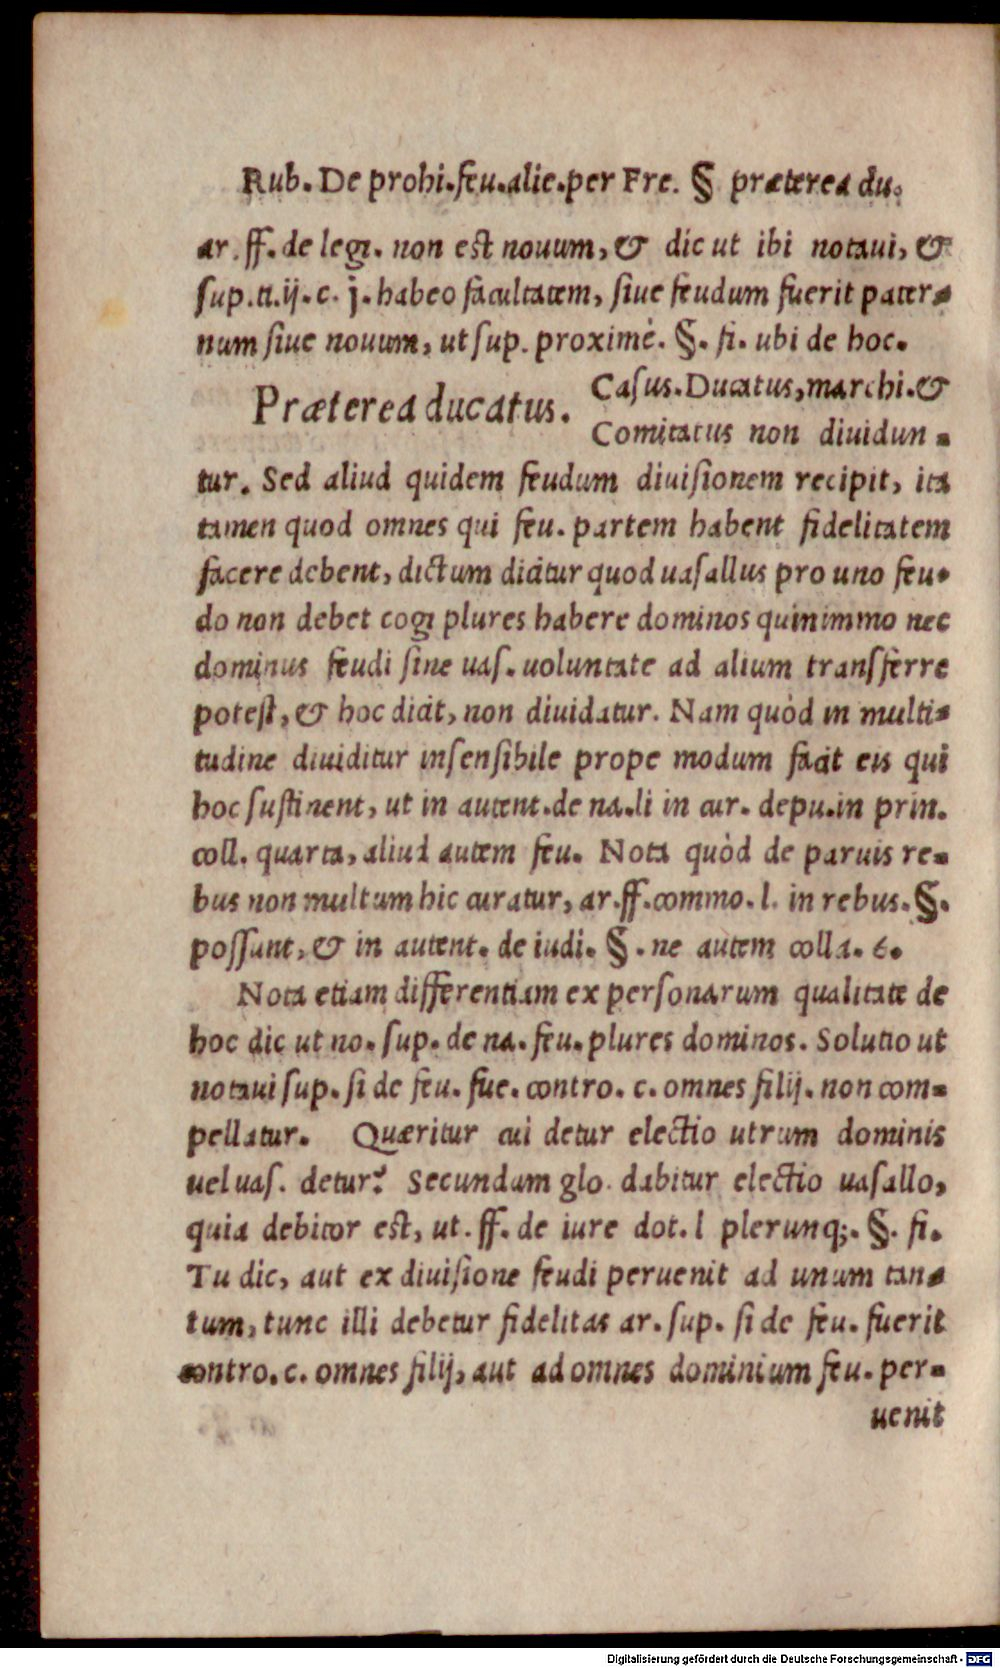 Rub. De prohi.feu.alie.per Fre. § præterea du.
ar. ff. de legi. non est nouum, & dic ut ibi notaui, &
sup.tt.ij.c. j. habeo facultatem, siue feudum fuerit pater-
num siue nouum, ut sup. proximè. §. fi. ubi de hoc.
Præterea ducatus. Casus. Ducatus, marchi. &
Comitatus non diuidun-
tur. Sed aliud quidem feudum diuisionem recipit, ita
tamen quod omnes qui feu. partem habent fidelitatem
facere debent, dictum dicitur quod uasallus pro uno feu-
do non debet cogi plures habere dominos quinimmo nec
dominus feudi sine uas. uoluntate ad alium transferre
potest, & hoc dicit, non diuidatur. Nam quòd in multi-
tudine diuiditur insensibile prope modum facit eis qui
hoc sustinent, ut in autent. de na. li in cur. depu. in prin.
coll. quarta, aliud autem feu. Nota quòd de paruis re-
bus non multum hic curatur, ar. ff. commo. l. in rebus. §.
possunt, & in autent. de iudi. §. ne autem colla. 6.
Nota etiam differentiam ex personarum qualitate de
hoc dic ut no. sup. de na. feu. plures dominos. Solutio ut
notaui sup. si de feu. fue. contro. c. omnes filij. non com-
pellatur. Quæritur cui detur electio utrum dominis
uel uas. detur? Secundum glo. dabitur electio uasallo,
quia debitor est, ut. ff. de iure dot. l plerunq;. §. fi.
Tu dic, aut ex diuisione feudi peruenit ad unum tan-
tum, tunc illi debetur fidelitas ar. sup. si de feu. fuerit
contro. c. omnes filij, aut ad omnes dominium feu. per-
uenit
Digitalisierung gefördert durch die Deutsche Forschungsgemeinschaft - DFG